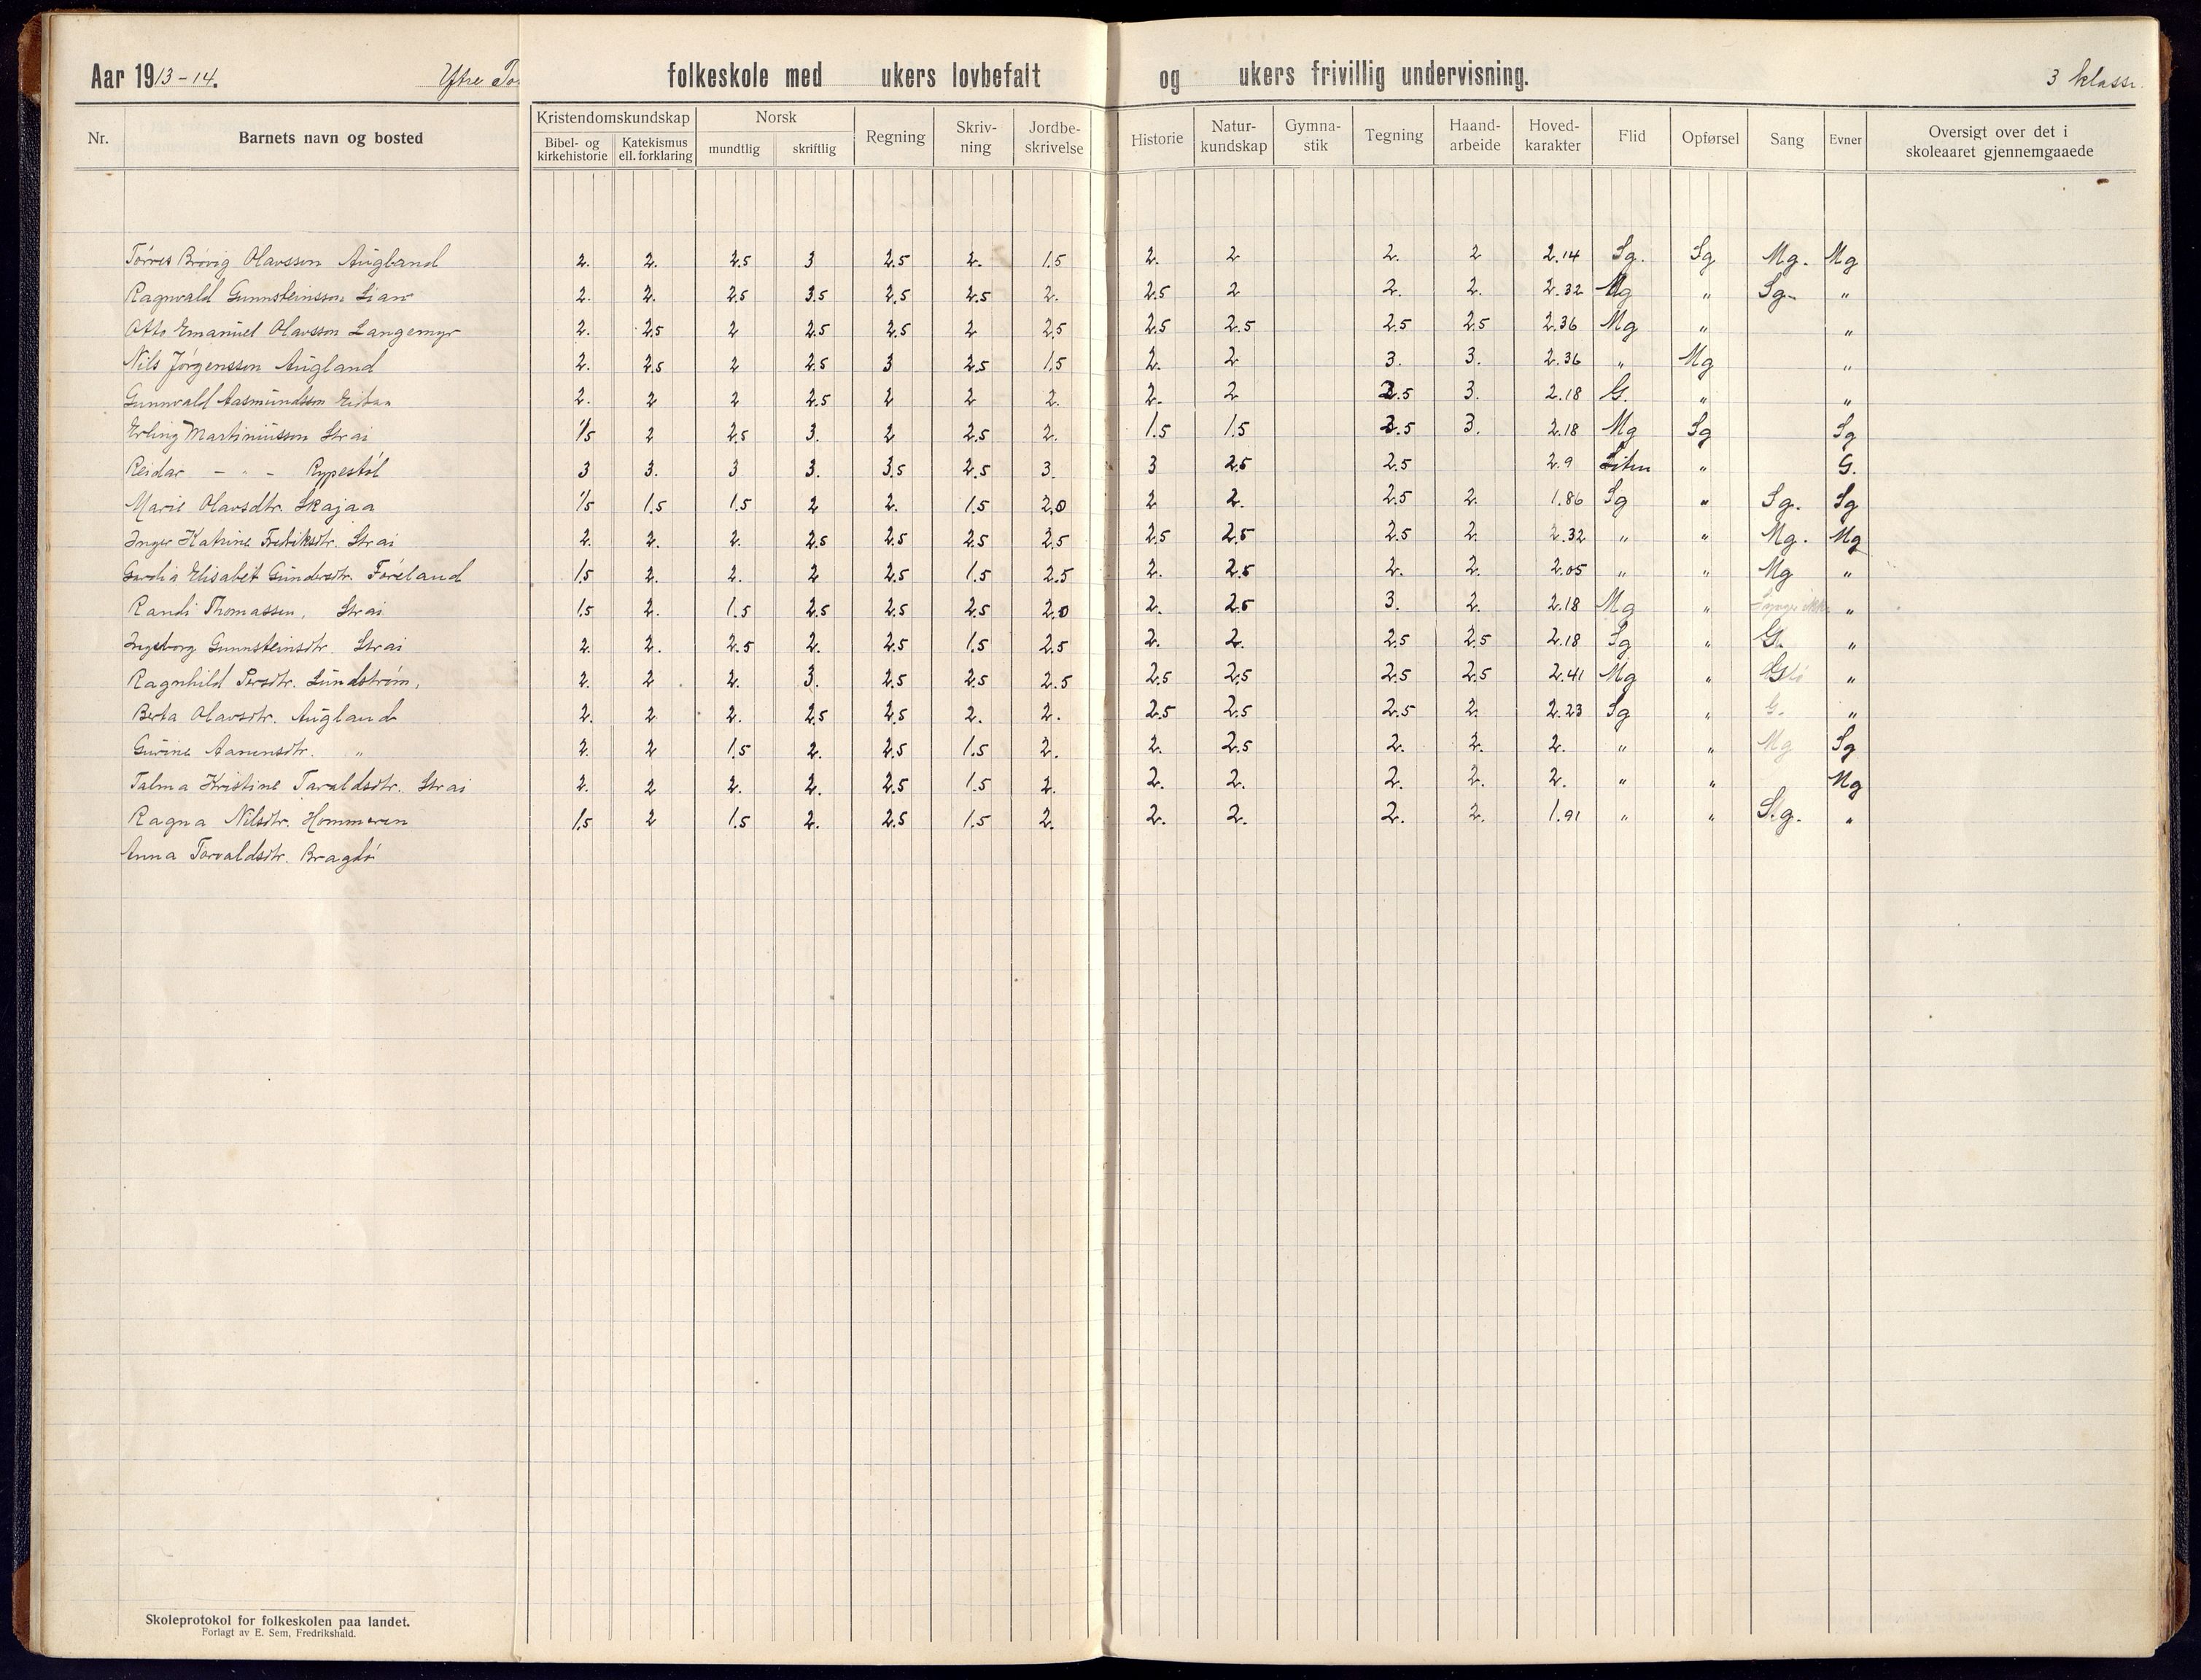 Aar 1913-14. Ytre To folkeskole med ukers lovbefalt og ukers frivillig undervisning. 3 klasse.
Nr. Barnets navn og bosted Kristendomskundskap Bibel- og kirkehistorie Katekismus ell. forklaring Norsk mundtlig skriftlig Regning Skriv-ning Jordbe-skrivelse Historie Natur-kundskap Gymna-stik Tegning Haand-arbeide Hoved-karakter Flid Opførsel Sang Evner Oversigt over det i skoleaaret gjennemgaaede
Tørres Brøvig Olavssøn Augland 2. 2. 2.5 3 2.5 2. 1.5 2. 2 2. 2 2.14 Sg. Sg Mg. Mg
Ragnvald Gunnsteinsson Lian 2. 2. 2.5 3.5 2.5 2.5 2. 2.5 2 2. 2. 2.32 Mg " Sg- "
Otto Emanuel Olavsson Langemyr 2. 2.5 2 2.5 2.5 2 2.5 2.5 2.5 2.5 2.5 2.36 Mg " "
Nils Jørgensson Augland 2. 2.5 2 2.5 3 2.5 1.5 2. 2 3. 3. 2.36 " Mg "
Gunnvald Aasmundsson 2. 2 2 2.5 2 2 2. 2. 2 2.5 3. 2.18 G. " "
Erling Martiniusson Strai 1.5 2 2.5 3. 2 2.5 2. 1.5 1.5 2.5 3. 2.18 Mg Sg Sg
Reidar - " - Rypestøl 3 3. 3 3. 3.5 2.5 3. 3 2.5 2.5 2.9 Liten " G.
Marie Olavsdtr. Skajaa 1.5 1.5 1.5 2 2. 1.5 2,0 2 2. 2.5 2. 1.86 Sg " Sg. Sg
Inger Katrine Fredriksdtr. Strai 2. 2. 2. 2.5 2.5 2.5 2.5 2.5 2.5 2.5 2. 2.32 " " Mg. Mg
Elisabet Gundersdtr. Føreland 1.5 2. 2. 2 2.5 1.5 2.5 2. 2.5 2. 2. 2.05 " " Mg "
Randi Thomassen, Strai 1.5 2. 1.5 2.5 2.5 2.5 2.0 2. 2.5 3. 2. 2.18 Mg " Synger ikke "
Ingeborg Gunnsteinsdtr. Strai 2. 2. 2.5 2. 2.5 1.5 2.5 2. 2. 2.5 2.5 2.18 Sg " G. "
Ragnhild Persdtr. Lundstrøm, 2. 2 2. 3. 2.5 2.5 2.5 2.5 2.5 2.5 2.5 2.41 Mg " "
Berta Olavsdtr. Augland 2. 2 2. 2.5 2.5 2. 2. 2.5 2.5 2.5 2. 2.23 Sg " G. "
Gurine Aanensdtr. " 2. 2 1.5 2. 2.5 1.5 2. 2. 2.5 2. 2. 2. " " Mg Sg
Talma Kristine Taraldsdtr. Strai 2. 2 2. 2. 2.5 1.5 2. 2. 2. 2. 2. 2. " " Mg
Ragna Nilsdtr. Hommeren 1.5 2 1.5 2. 2.5 1.5 2. 2. 2. 2. 2. 1.91 " " S.g. "
Anna Torvaldsdtr. Bragdø
Skoleprotokol for folkeskolen paa landet.
Forlagt av E. Sem, Fredrikshald.